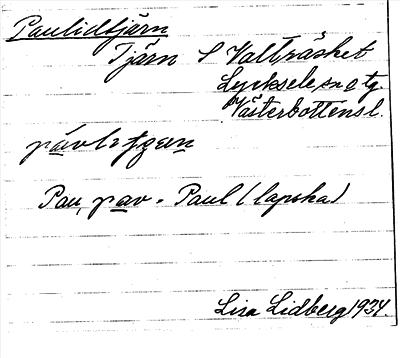 Paulidtjärn
Tjärn S Vallträsket
Lycksele sn o tg.
Västerbottens l.
Pau, pav = Paul (lapska)
Lisa Lidberg 1934.